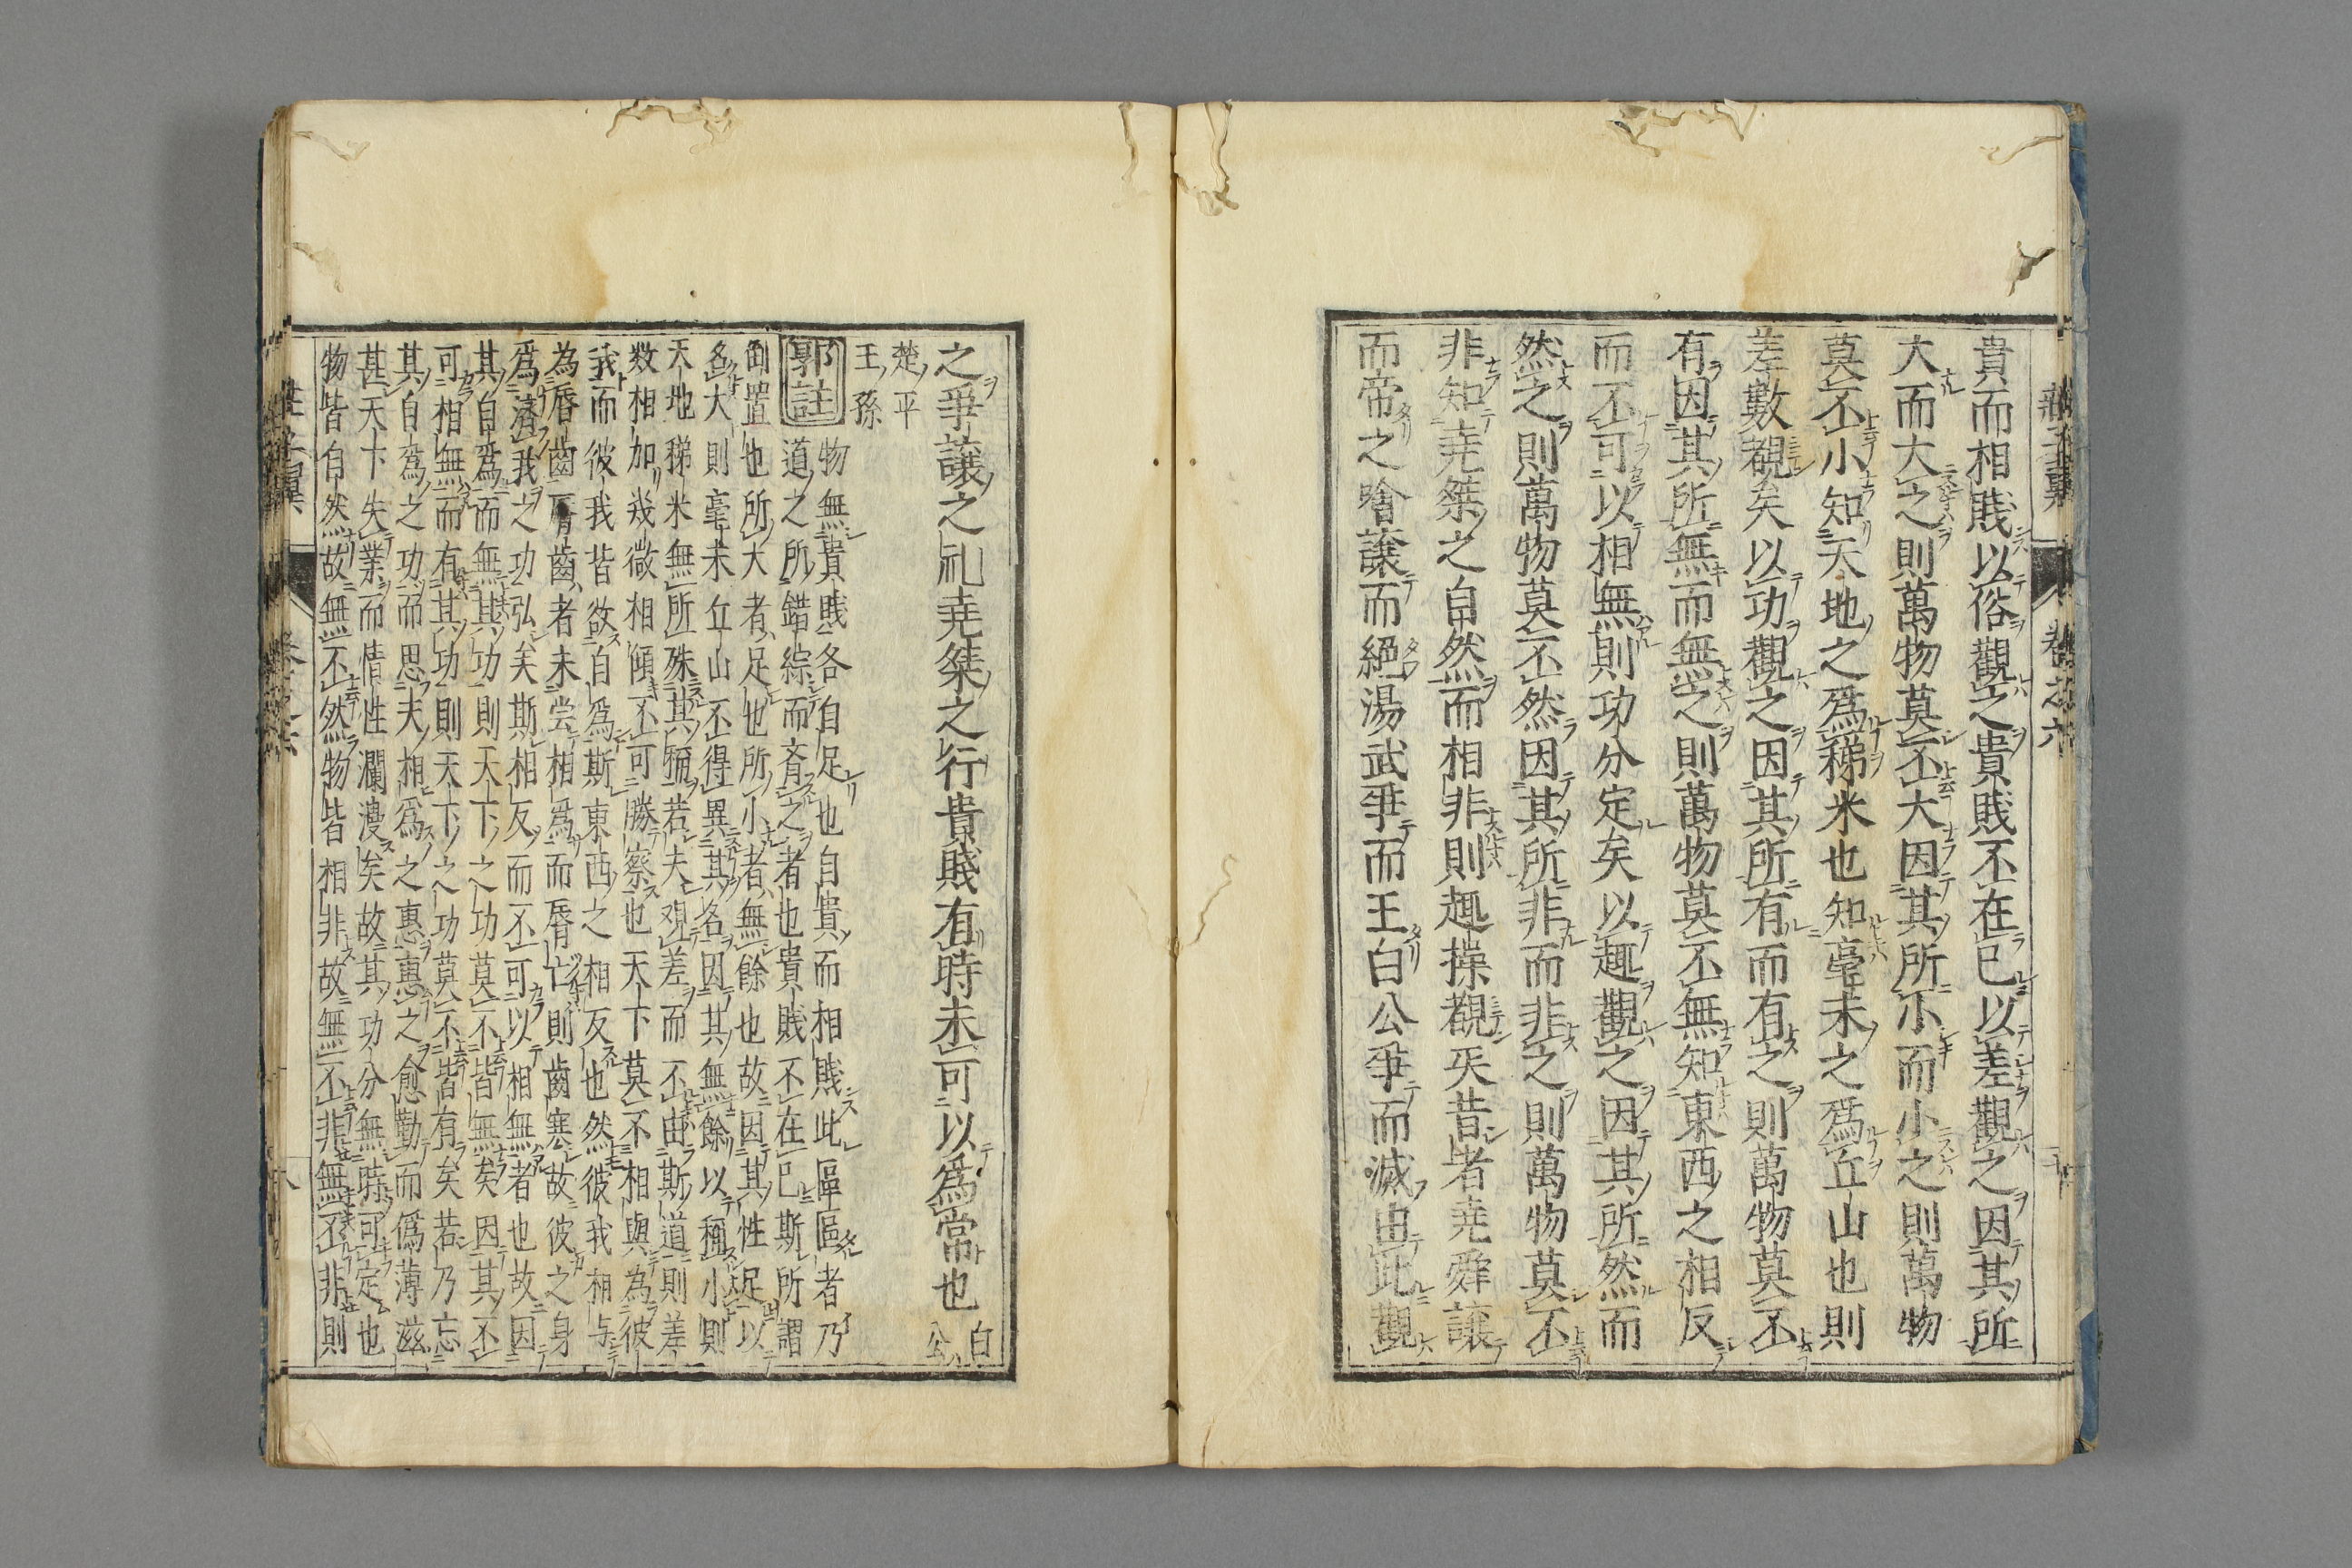 貴而相賤以俗觀之貴賤不在已以差觀之因其所
大而大之則萬物莫不大因其所小而小之則萬物
莫不小知天地之爲稊米也知毫末之爲丘山也則
差數覩矣以功觀之因其所有而有之則萬物莫不
有因其所無而無之則萬物莫不無知東西之相反
而不可以相無則功分定矣以趣觀之因其所然而
然之則萬物莫不然因其所非而非之則萬物莫不
非知尭桀之自然而相非則趣操覩矣昔者尭舜讓
而帝之噲讓而絕湯武爭而王白公爭而滅由此觀
之爭讓之礼尭桀之行貴賤有時未可以爲常也白公
楚平王孫
郭註
物無貴賤各自足也自貴而相賤此區區者乃
道之所錯綜而斉之者也貴賤不在已斯所謂
倒置也所大者足也所小者無餘也故因其性足以
名大則毫末丘山不得異其名因其無餘以稱小則
天地稊米無所殊其稱若夫观差而不由斯道則差
数相加幾微相傾不可勝察也天下莫不相與為彼
我而彼我皆欲自爲斯東西之相反也然彼我相与
為唇齒唇齒者未尝相爲而唇亡則齒寒故彼之身
爲濟我之功弘矣斯相反而不可以相無者也故因
其自爲而無其功則天下之功莫不皆無矣因其不
可相無而有其功則天下之功莫不皆有矣若乃忘
其自爲之功而思夫相爲之惠惠之愈勤而僞薄滋
甚天下失業而情性瀾漫矣故其功分無時可定也
物皆自然故無不然物皆相非故無不非無不非則